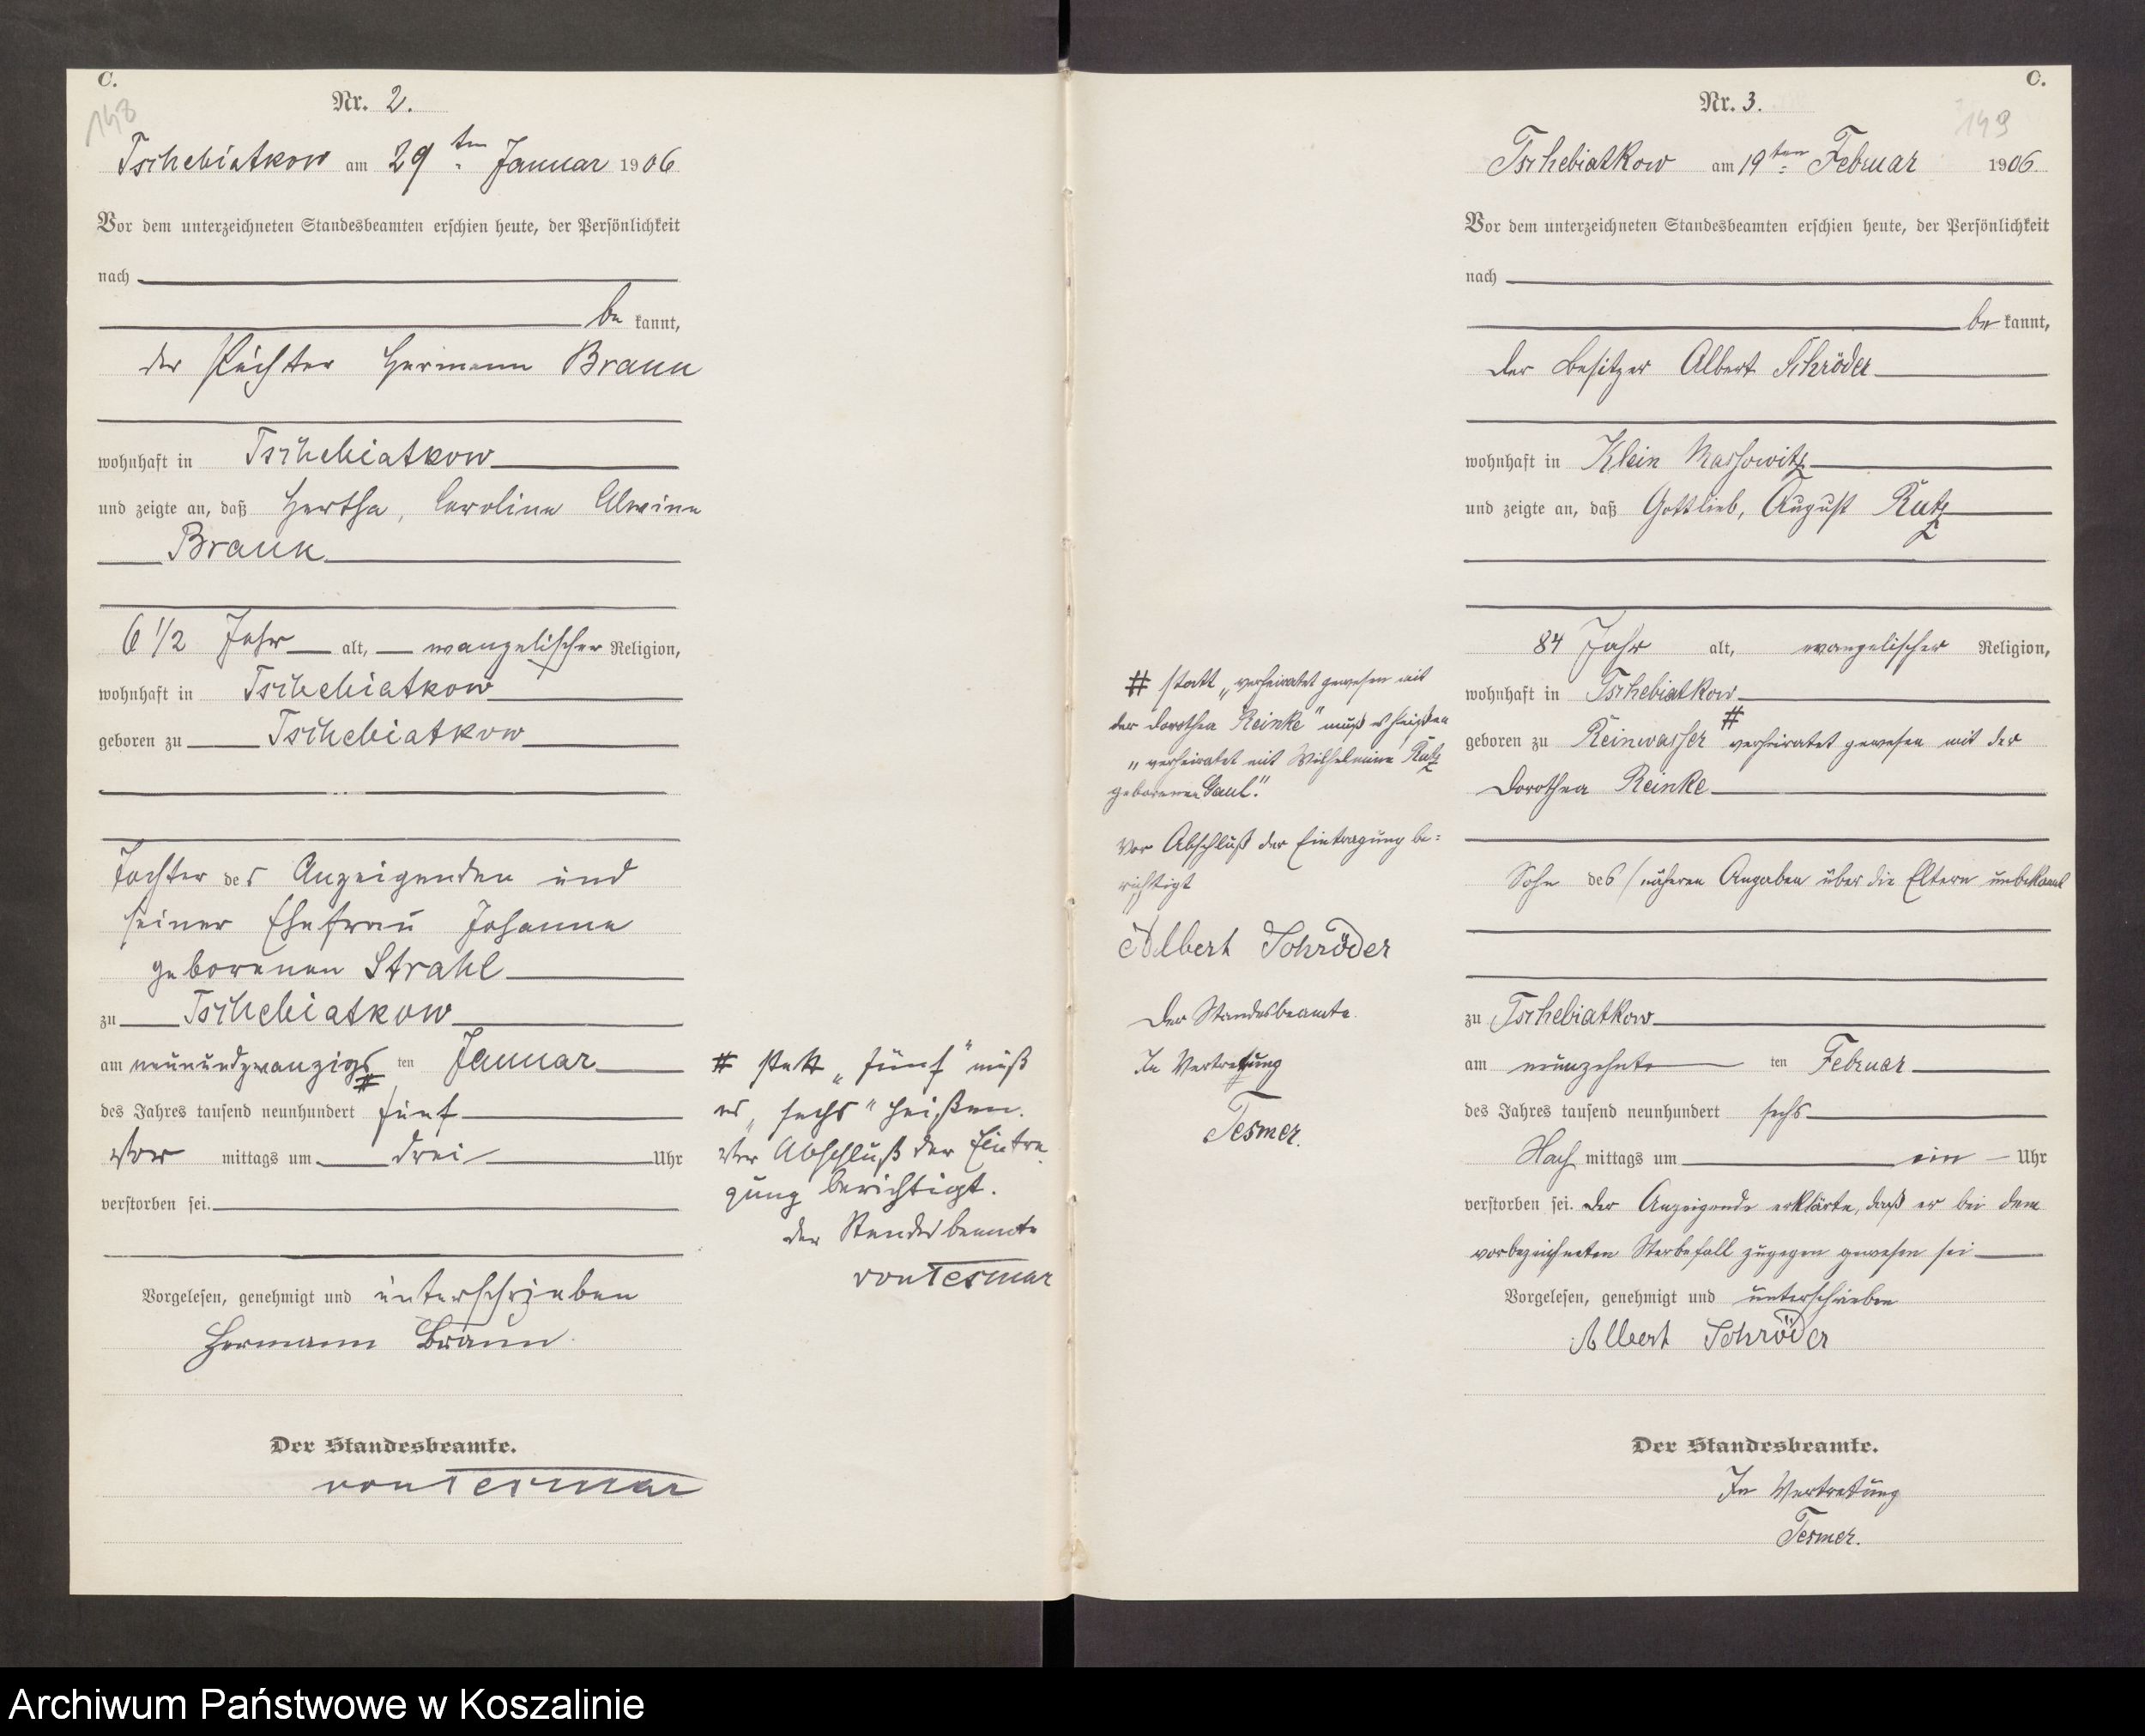 C.
148
Nr. 2.
Tschebiatkow am 29ten Januar 1906
Vor dem unterzeichneten Standesbeamten erschien heute, der Persönlichkeit
nach
be kannt,
der Pächter Hermann Braun
wohnhaft in Tschebiatkow
und zeigte an, daß Hertha, Caroline Alwine
Braun
6 1/2 Jahr alt, evangelischer Religion,
wohnhaft in Tschebiatkow
geboren zu Tschebiatkow
Tochter des Anzeigenden und
seiner Ehefrau Johanne
geborenen Strahl
zu Tschebiatkow
am neunundzwanzigs ten Januar
des Jahres tausend neunhundert # fünf
Vor mittags um drei Uhr
verstorben sei.
Vorgelesen, genehmigt und unterschrieben
Hermann Braun
Der Standesbeamte.
von Tesmar
# statt „fünf" muß
es „sechs" heißen.
Vor Abschluß der Eintra
gung berichtigt.
der Standesbeamte
von Tesmar
C.
149
Nr. 3.
Tschebiatkow am 19ten Februar 1906.
Vor dem unterzeichneten Standesbeamten erschien heute, der Persönlichkeit
nach
be kannt,
der Besitzer Albert Schröder
wohnhaft in Klein Massowitz
und zeigte an, daß Gottlieb, August Rutz
84 Jahr alt, evangelischer Religion,
wohnhaft in Tschebiatkow
geboren zu Reinwasser # verheiratet gewesen mit der
Dorothea Reinke
Sohn des / näheren Angaben über die Eltern unbekannt
zu Tschebiatkow
am neunzehnte ten Februar
des Jahres tausend neunhundert sechs
Nach mittags um ein Uhr
verstorben sei. Der Anzeigende erklärte, daß er bei dem
vorbezeichneten Sterbefall zugegen gewesen sei
Vorgelesen, genehmigt und unterschrieben
Albert Schröder
Der Standesbeamte.
In Vertretung
Tesmer.
# statt „verheiratet gewesen mit
der Dorothea Reinke" muß es heißen
„verheiratet mit Wilhelmine Rutz
geborenen Gaul".
Vor Abschluß der Eintragung be=
richtigt
Albert Schröder
Der Standesbeamte
In Vertretung
Tesmer.
Archiwum Państwowe w Koszalinie